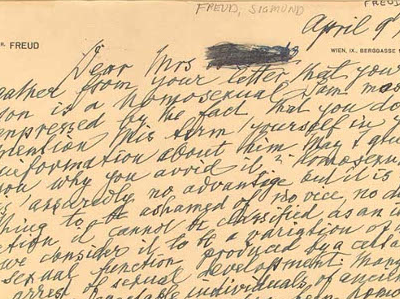 FREUD, SIGMUND
FREUD
April 9
WIEN, IX., BERGGASSE
Dear Mrs
gather from your letter that your
son is a homosexual. I am most
impressed by the fact that you do
mention this term yourself in y
information about him. May I
you why you avoid it? Homosexua
is assuredly no advantage but it is
thing to be ashamed of, no vice, no de
it cannot be classified as an
we consider it to be a variation of
sexual function produced by a certa
arrest of sexual development. Many
individuals of ancien